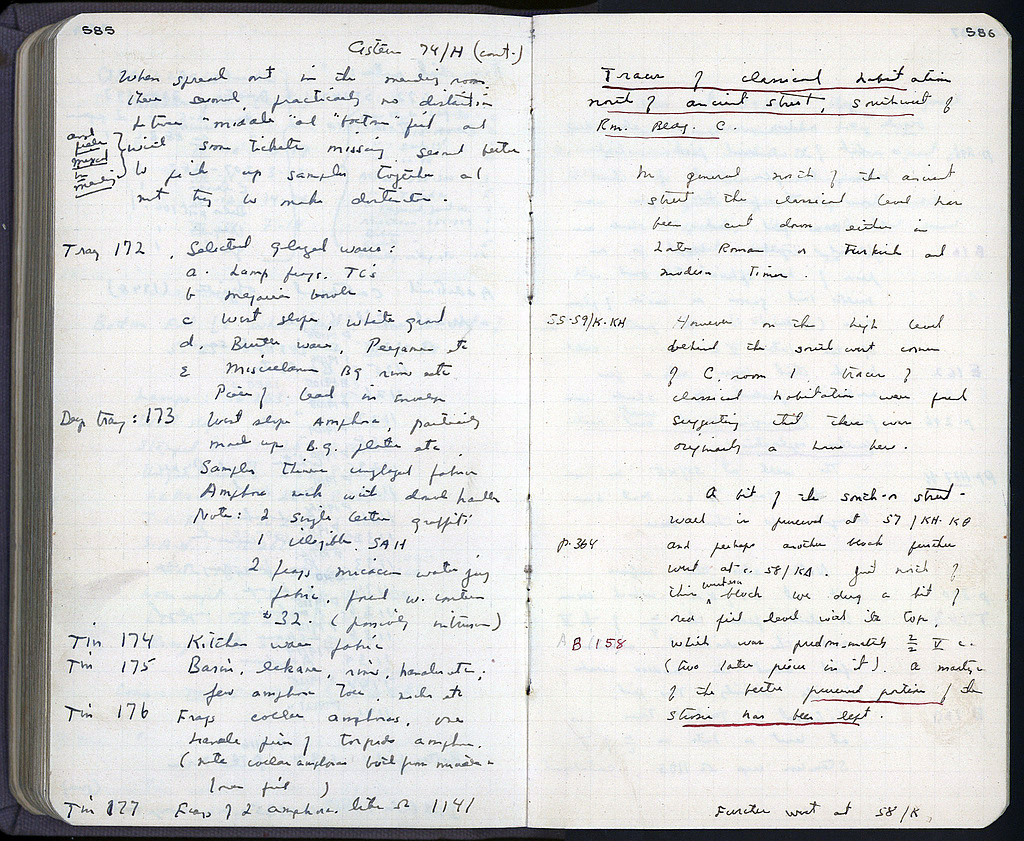 585
Cistern 74/H (cont.)
When spread out in the mending room
there seemed practically no distinction
between "middle" and "bottom" fill and
with some tickets missing seemed better
to pick up samples together and
not try to make distinction.
and fills
mixed
in
mending
Tray 172. Selected glazed wares:
a. Lamp frags. TC's
b Megarian bowls
c West slope, white grd
d. Butter ware, Pergamene etc
e Miscellaneous BG rims etc
Piece of lead in envelope
Deep tray: 173 West slope Amphora, partially
made up B.G. plates etc
Samples thinner unglazed fabric
Amphora neck with double handles
Note: 2 single letter graffiti
1 illegible SAH
2 frags micaceous water jug
fabric, found w. contents
#32. (possibly intrusion)
Tin 174 Kitchen ware fabric
Tin 175 Basin, lekane, rims, handles etc;
few amphora toes necks etc
Tin 176 Frags collar amphoras, one
handle piece of torpedo amphora.
(note collar amphoras both from middle &
lower fill)
Tin 177 Frags of 2 amphoras like 1141
586
Traces of classical habitation
north of ancient street, southwest of
Rm. Bldg. C.
In general north of the ancient
street the classical level has
been cut down either in
Later Roman or Turkish and
modern times.
55-59/K-KH However on the high level
behind the south west corner
of C, room 1, traces of
classical habitation were found
suggesting that there was
originally a house here.
A bit of the south-or street-
wall is preserved at 57/KH-KΘ
p.364 and perhaps another block further
west at c. 58/KΔ. Just north of
this western block we dug a bit of
red fill level with its top,
A B 158 which was predominately V c.
(two later pieces in it). A
of the better preserved portion of the
strosis has been left.
Further west at 58/K,